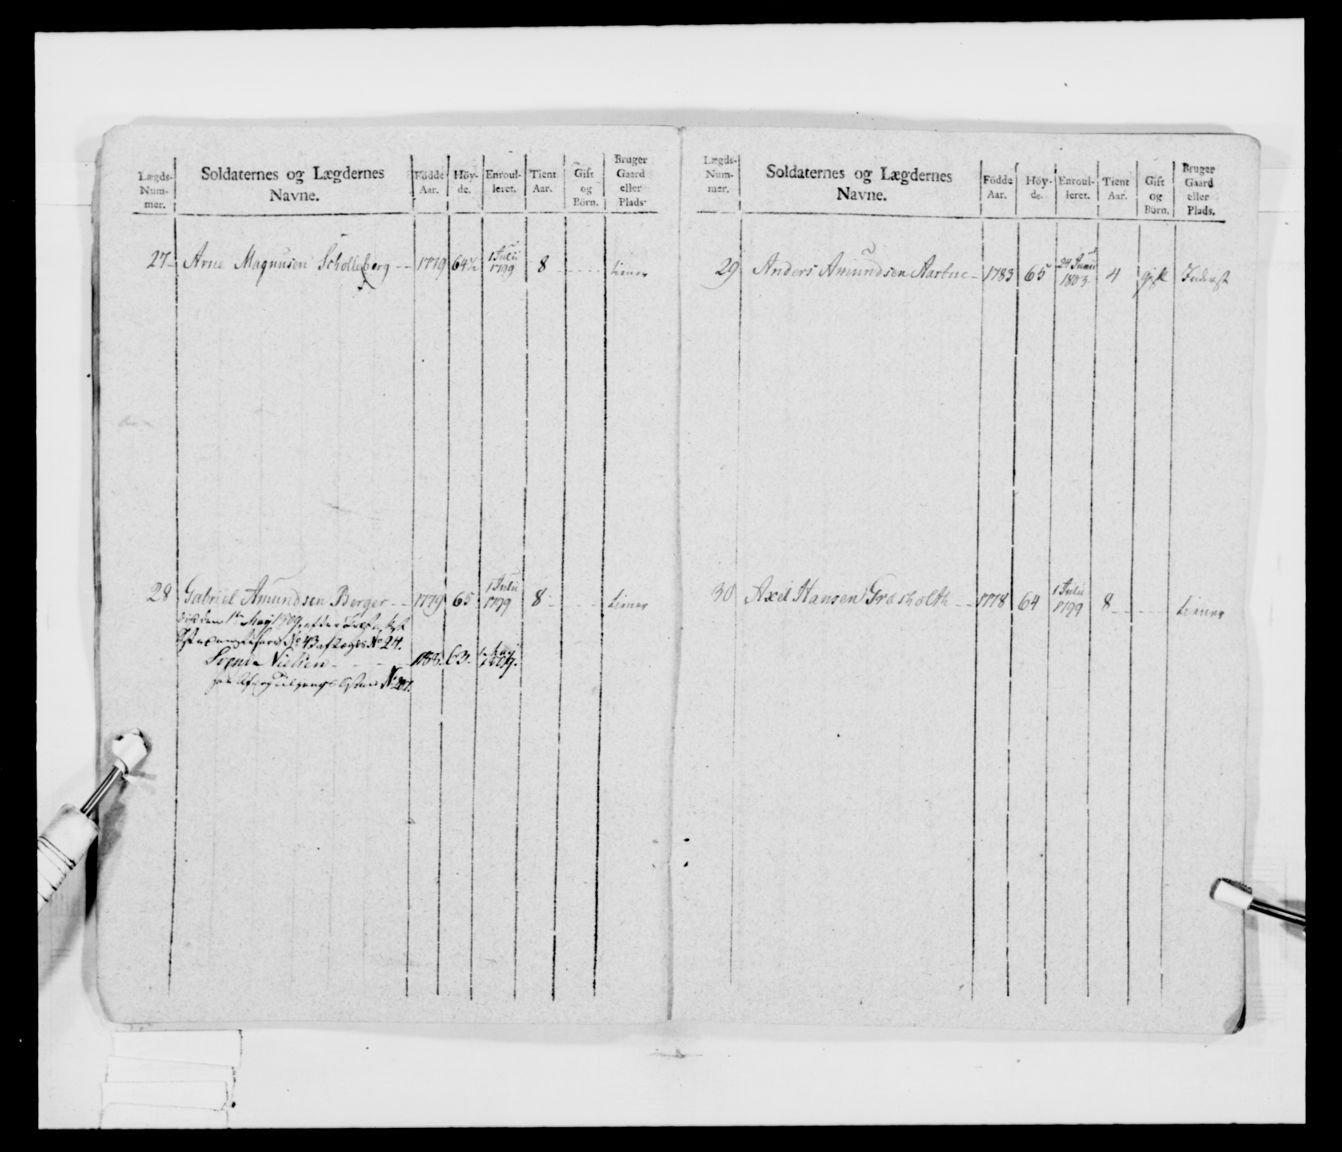 Lægds-Num-mer. Soldaternes og Lægdernes Navne. Födde Aar. Höy-de. Enroul-leret. Tient Aar. Gift og Börn. Bruger Gaard eller Plads.
27 Arne Magnusen Scholleberg 1779 64½ 1 Julii 1799 8 tiener
28 Gabriel Amundsen Berger 1779 65 1 Julii 1799 8 tiener
1ste May 1809
No 43 No 24.
Nielsen 63.
Lægds-Num-mer. Soldaternes og Lægdernes Navne. Födde Aar. Höy-de. Enroul-leret. Tient Aar. Gift og Börn. Bruger Gaard eller Plads.
29 Anders Amundsen Aastue 1783 65 24 Junii 1803 4 gift Inderst
30 Axel Hansen Grasholth 1778 64 1 Julii 1799 8 tiener